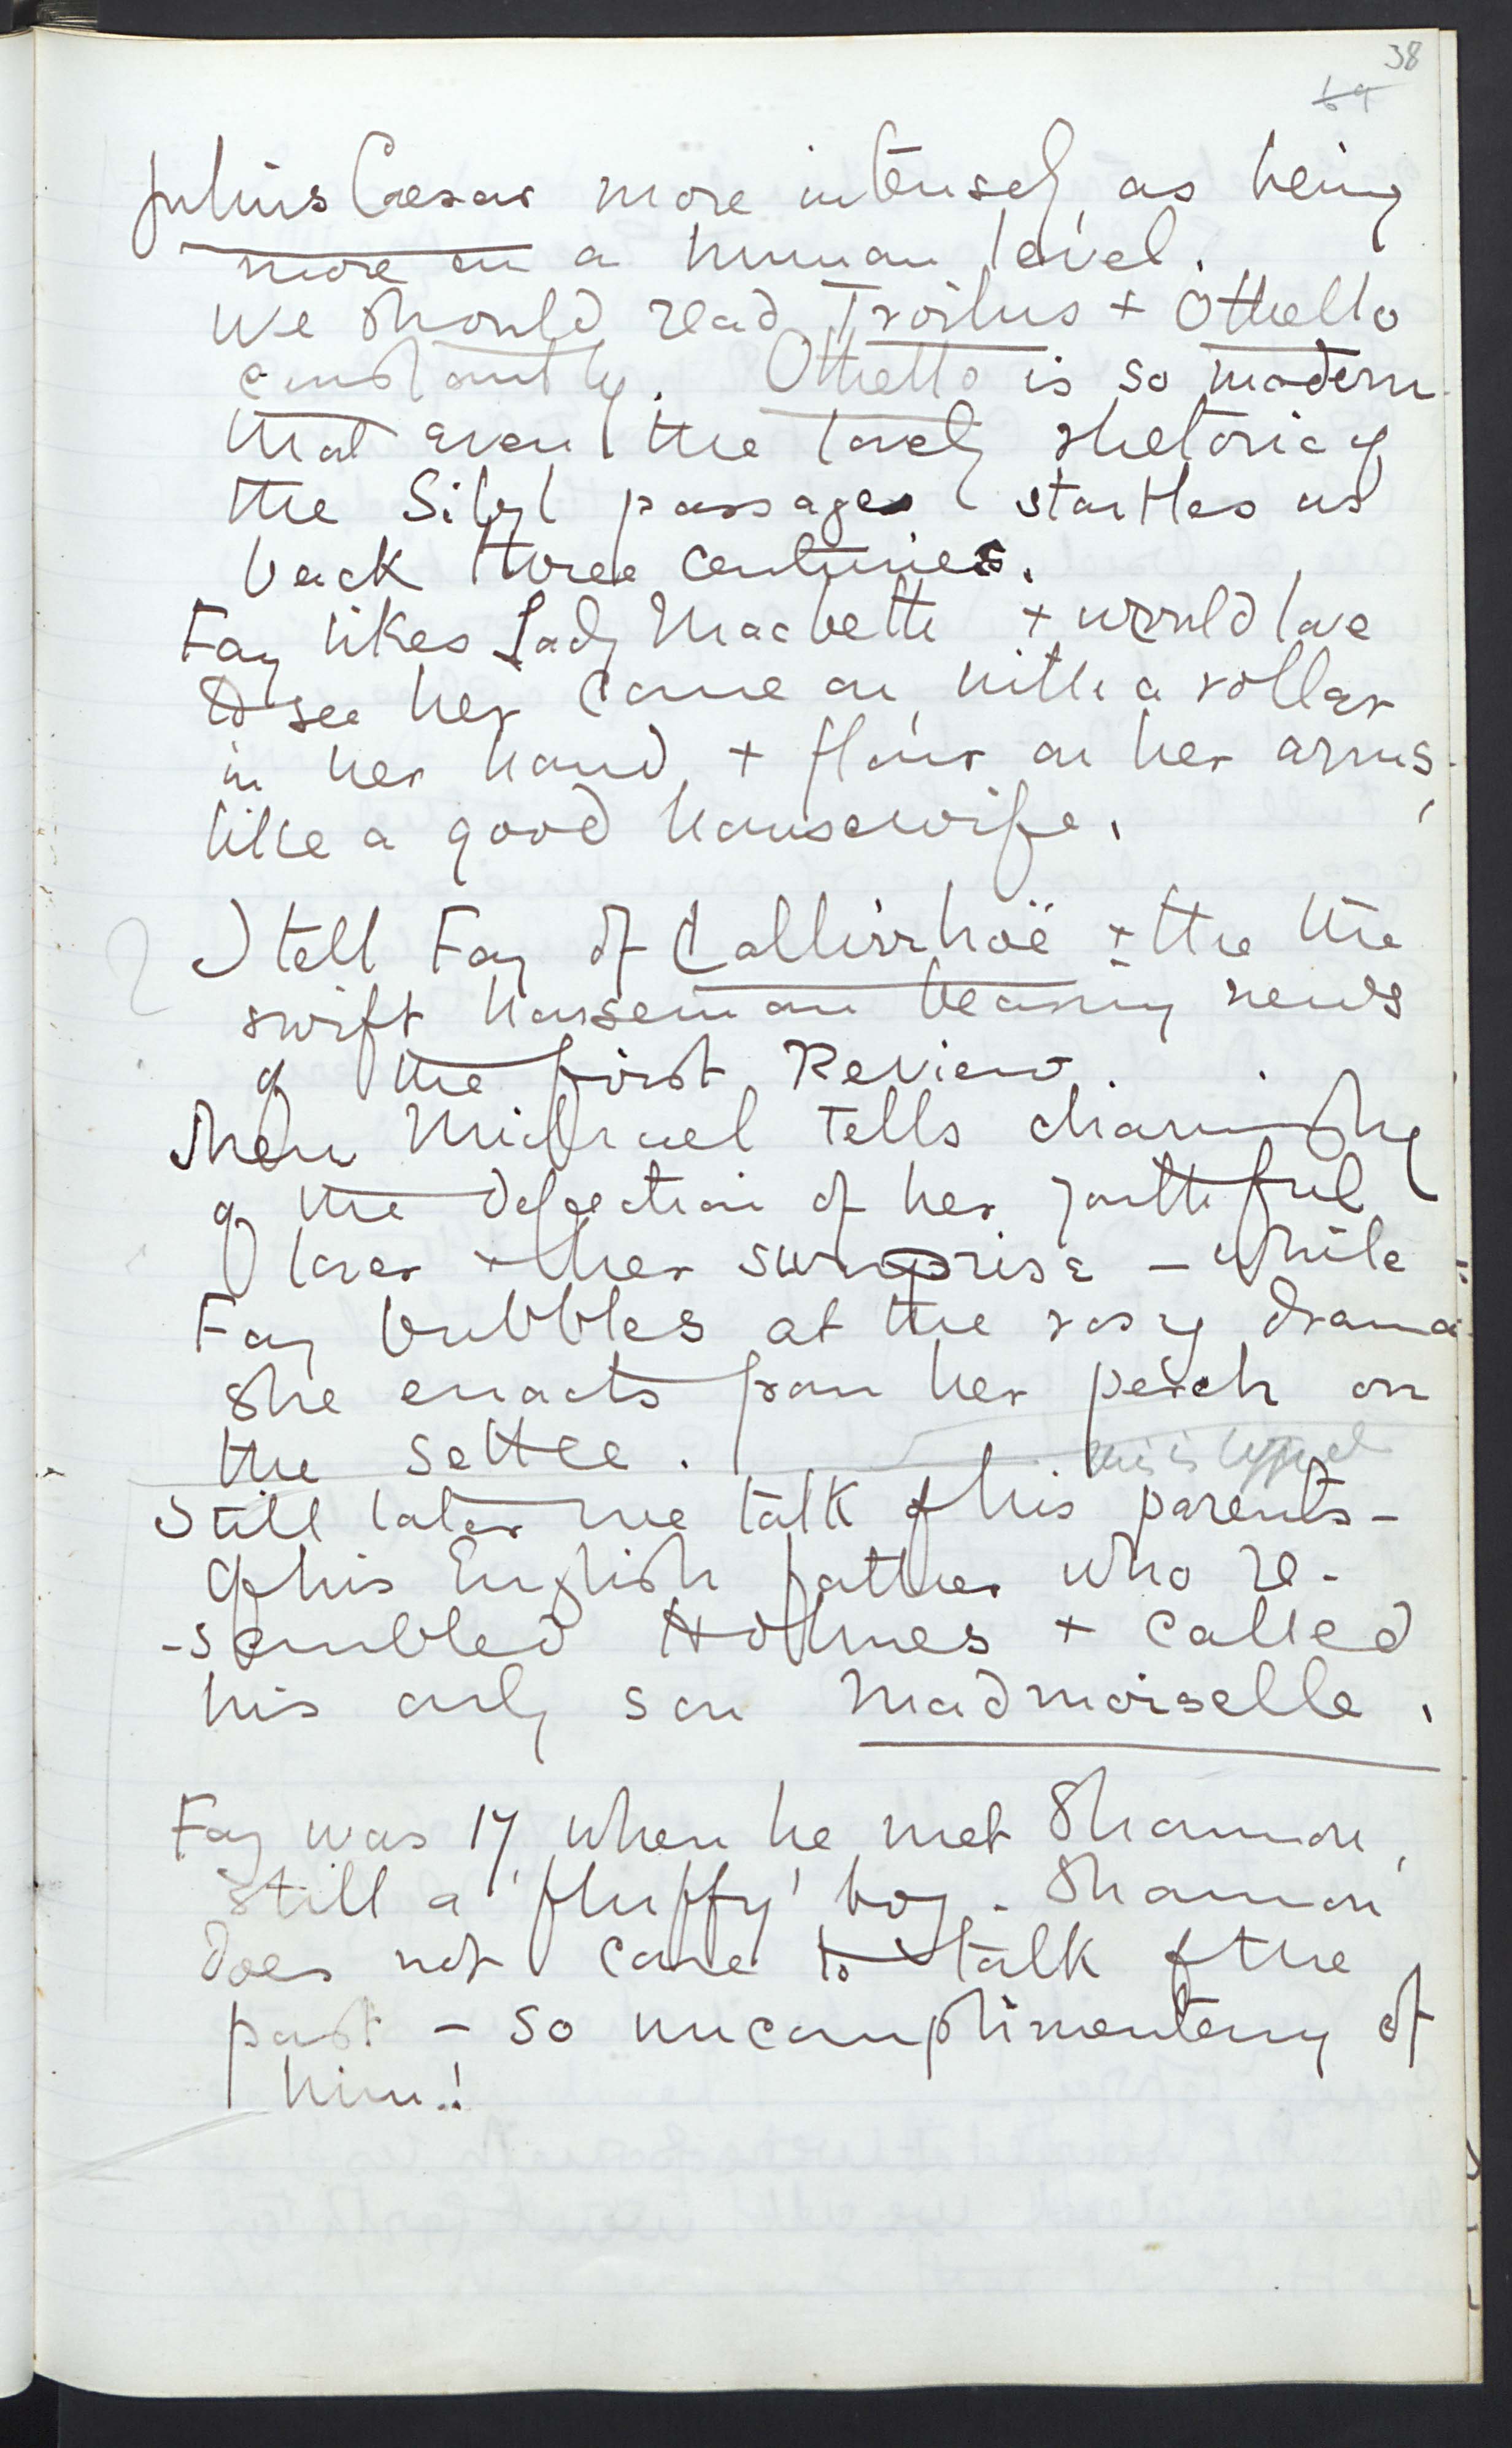 38
69
Julius Caesar more intensely, as being
more on a human level.
We should read Troilus + Othello
constantly. Othello is so modern
that even the lovely rhetoric of
the Sibyl passage startles us
back three centuries.
Fay likes Lady Macbeth + would love
to see her come on with a roller
in her hand, + flour on her arms,
like a good housewife.
I tell Fay of Callirrhoë + the the
swift horseman bearing news
of the first Review.
Then Michael tells charmingly
of the defection of her youthful
lover + her surprise - while
Fay bubbles at the rosy drama
she enacts from her perch on
the settee.
this is typed
Still later we talk of his parents -
of his English father who re-
-sembled Holmes + called
his only son Madmoiselle.
Fay was 17 when he met Shannon,
still a 'fluffy' boy. Shannon
does not care to talk of the
past - so uncomplimentary of
him!